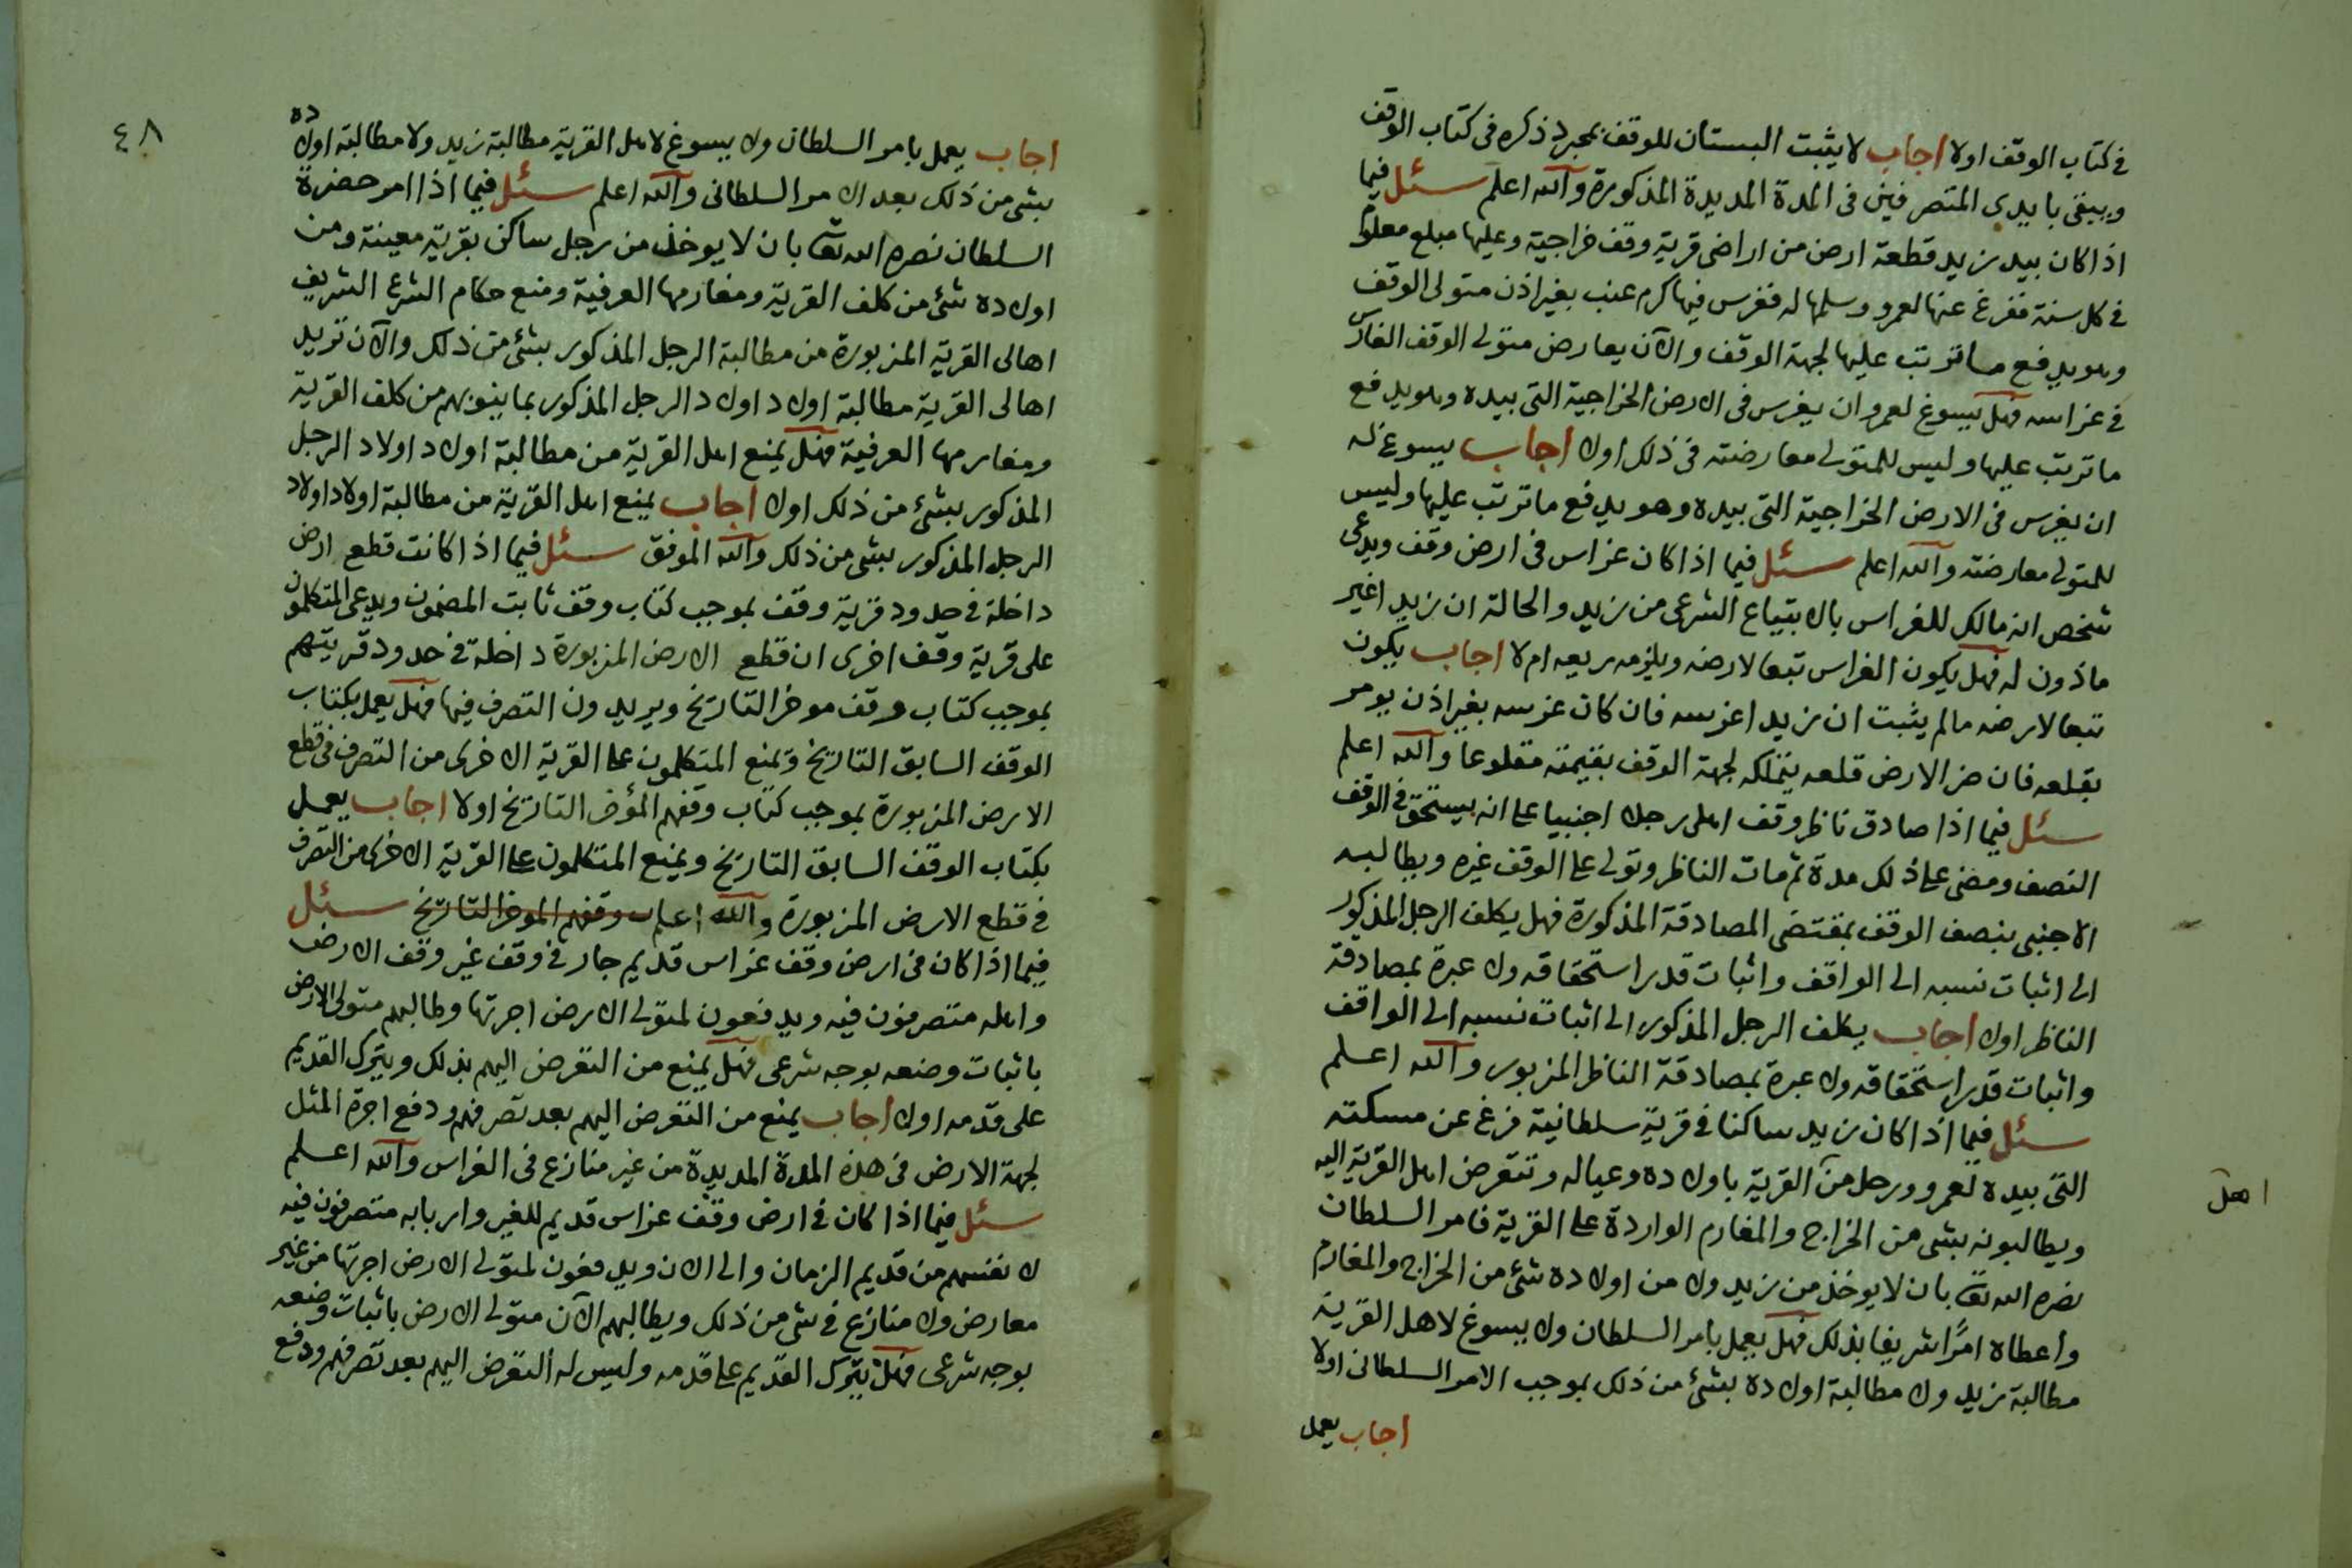 في كتاب الوقف اولا اجاب لا يثبت البستان للوقف بمجرد ذكره فى كتاب الوقف
ويبقى بايدى المتصرفين فى المدة المديدة المذكورة والله اعلم سئل فيما
اذا كان بيد زيد قطعة ارض من اراضى قرية وقف خراجية وعليها مبلغ معلوم
في كل سنة ففرغ عنها لعمرو وسلمها له فغرس فيها كرم عنب بغير اذن متولى الوقف
وهو يدفع ما ترتب عليها لجهة الوقف والآن يعارض متولى الوقف الغارس
في غراسه فهل يسوغ لعمرو ان يغرس فى الارض الخراجية التى بيده وهو يدفع
ما ترتب عليها وليس للمتولى معارضته فى ذلك اولا اجاب يسوغ له
ان يغرس فى الارض الخراجية التى بيده وهو يدفع ما ترتب عليها وليس
للمتولى معارضته والله اعلم سئل فيما اذا كان غراس فى ارض وقف ويدعى
شخص انه مالك للغراس بالابتياع الشرعى من زيد والحالة ان زيدا غير
ماذون له فهل يكون الغراس تبعا لارضه ويلزمه ريعه ام لا اجاب يكون
تبعا لارضه مالم يثبت ان زيدا غرسه فان كان غرسه بغير اذن يومر
بقلعه فان ضر الارض قلعه يتملكه لجهة الوقف بقيمته مقلوعا والله اعلم
سئل فيما اذا صادق ناظر وقف اهلى رجلا اجنبيا على انه يستحق فى الوقف
النصف ومضى على ذلك مدة ثم مات الناظر وتولى على الوقف غيره ويطالبه
الاجنبى بنصف الوقف بمقتضى المصادقة المذكورة فهل يكلف الرجل المذكور
الى اثبات نسبه الى الواقف واثبات قدر استحقاقه ولا عبرة بمصادقة
الناظر اولا اجاب يكلف الرجل المذكور الى اثبات نسبه الى الواقف
واثبات قدر استحقاقه ولا عبرة بمصادقة الناظر المزبور والله اعلم
سئل فيما اذا كان زيد ساكنا في قرية سلطانية فرغ عن مسكنته
التى بيده لعمرو ورحل من القرية باولاده وعياله وتتعرض اهل القرية اليه
ويطالبونه بشى من الخراج والمغارم الواردة على القرية فامر السلطان
نصره الله تعا بان لا يوخذ من زيد ولا من اولاده شئ من الخراج والمغارم
واعطاه امرًا شريفا بذلك فهل يعمل بامر السلطان ولا يسوغ لاهل القرية
مطالبة زيد ولا مطالبة اولاده بشئ من ذلك بموجب الامر السلطانى اولا
اجاب يعمل
اهل
٤٨
اجاب يعمل بامر السلطان ولا يسوغ لاهل القرية مطالبة زيد ولا مطالبة اولاده
بشى من ذلك بعد الامر السلطانى والله اعلم سئل فيما اذا امر حضرة
السلطان نصره الله تعا بان لا يوخذ من رجل ساكن بقرية معينة ومن
اولاده شئ من كلف القرية ومغارمها العرفية ومنع حكام الشرع الشريف
اهالى القرية المزبورة من مطالبة الرجل المذكور بشئ من ذلك والآن تريد
اهالى القرية مطالبة اولاد اولاد الرجل المذكور بما ينوبهم من كلف القرية
ومغارمها العرفية فهل يمنع اهل القرية من مطالبة اولاد اولاد الرجل
المذكور بشئ من ذلك اولا اجاب يمنع اهل القرية من مطالبة اولاد اولاد
الرجل المذكور بشى من ذلك والله الموفق سئل فيما اذا كانت قطع ارض
داخلة فى حدود قرية وقف بموجب كتاب وقف ثابت المضمون ويدعى المتكلمون
على قرية وقف اخرى ان قطع الارض المزبورة داخلة فى حدود قريتهم
بموجب كتاب وقف موخر التاريخ ويريدون التصرف فيها فهل يعمل بكتاب
الوقف السابق التاريخ وتمنع المتكلمون على القرية الاخرى من التصرف فى قطع
الارض المزبورة بموجب كتاب وقفهم المؤخر التاريخ اولا اجاب يعمل
بكتاب الوقف السابق التاريخ ويمنع المتكلمون على القرية الاخرى من التصرف
في قطع الارض المزبورة والله اعلم وقفهم الموخر التاريخ سئل
فيما اذا كان فى ارض وقف غراس قديم جار فى وقف غير وقف الارض
واهله متصرفون فيه ويدفعون لمتولى الارض اجرتها وطالبهم متولى الارض
باثبات وضعه بوجه شرعى فهل يمنع من التعرض اليهم بذلك ويترك القديم
على قدمه اولا اجاب يمنع من التعرض اليهم بعد تصرفهم ودفع اجرة المثل
لجهة الارض فى هذه المدة المديدة من غير منازع فى الغراس والله اعلم
سئل فيما اذا كان فى ارض وقف غراس قديم للغير واربابه متصرفون فيه
لانفسهم من قديم الزمان والى الان ويدفعون لمتولى الارض اجرتها من غير
معارض ولا منازع فى شى من ذلك ويطالبهم الآن متولى الارض باثبات وضعه
بوجه شرعى فهل يترك القديم على قدمه وليس له التعرض اليهم بعد تصرفهم ودفع